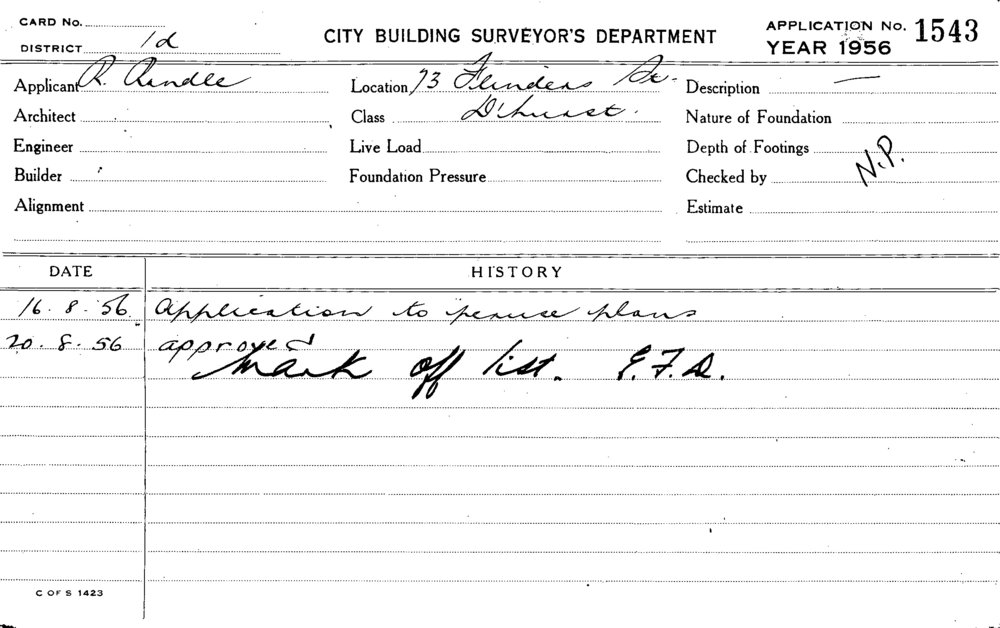 CARD No.
DISTRICT 1d
CITY BUILDING SURVEYOR'S DEPARTMENT
APPLICATION No. 1543
YEAR 1956
Applicant R. Rundle Location 73 Flinders St. Description —
Architect Class D'hurst. Nature of Foundation
Engineer Live Load Depth of Footings
Builder Foundation Pressure Checked by N.P.
Alignment Estimate
DATE HISTORY
16.8.56. Application to peruse plans
20.8.56 approved
Mark off list. E.F.D.
C OF S 1423